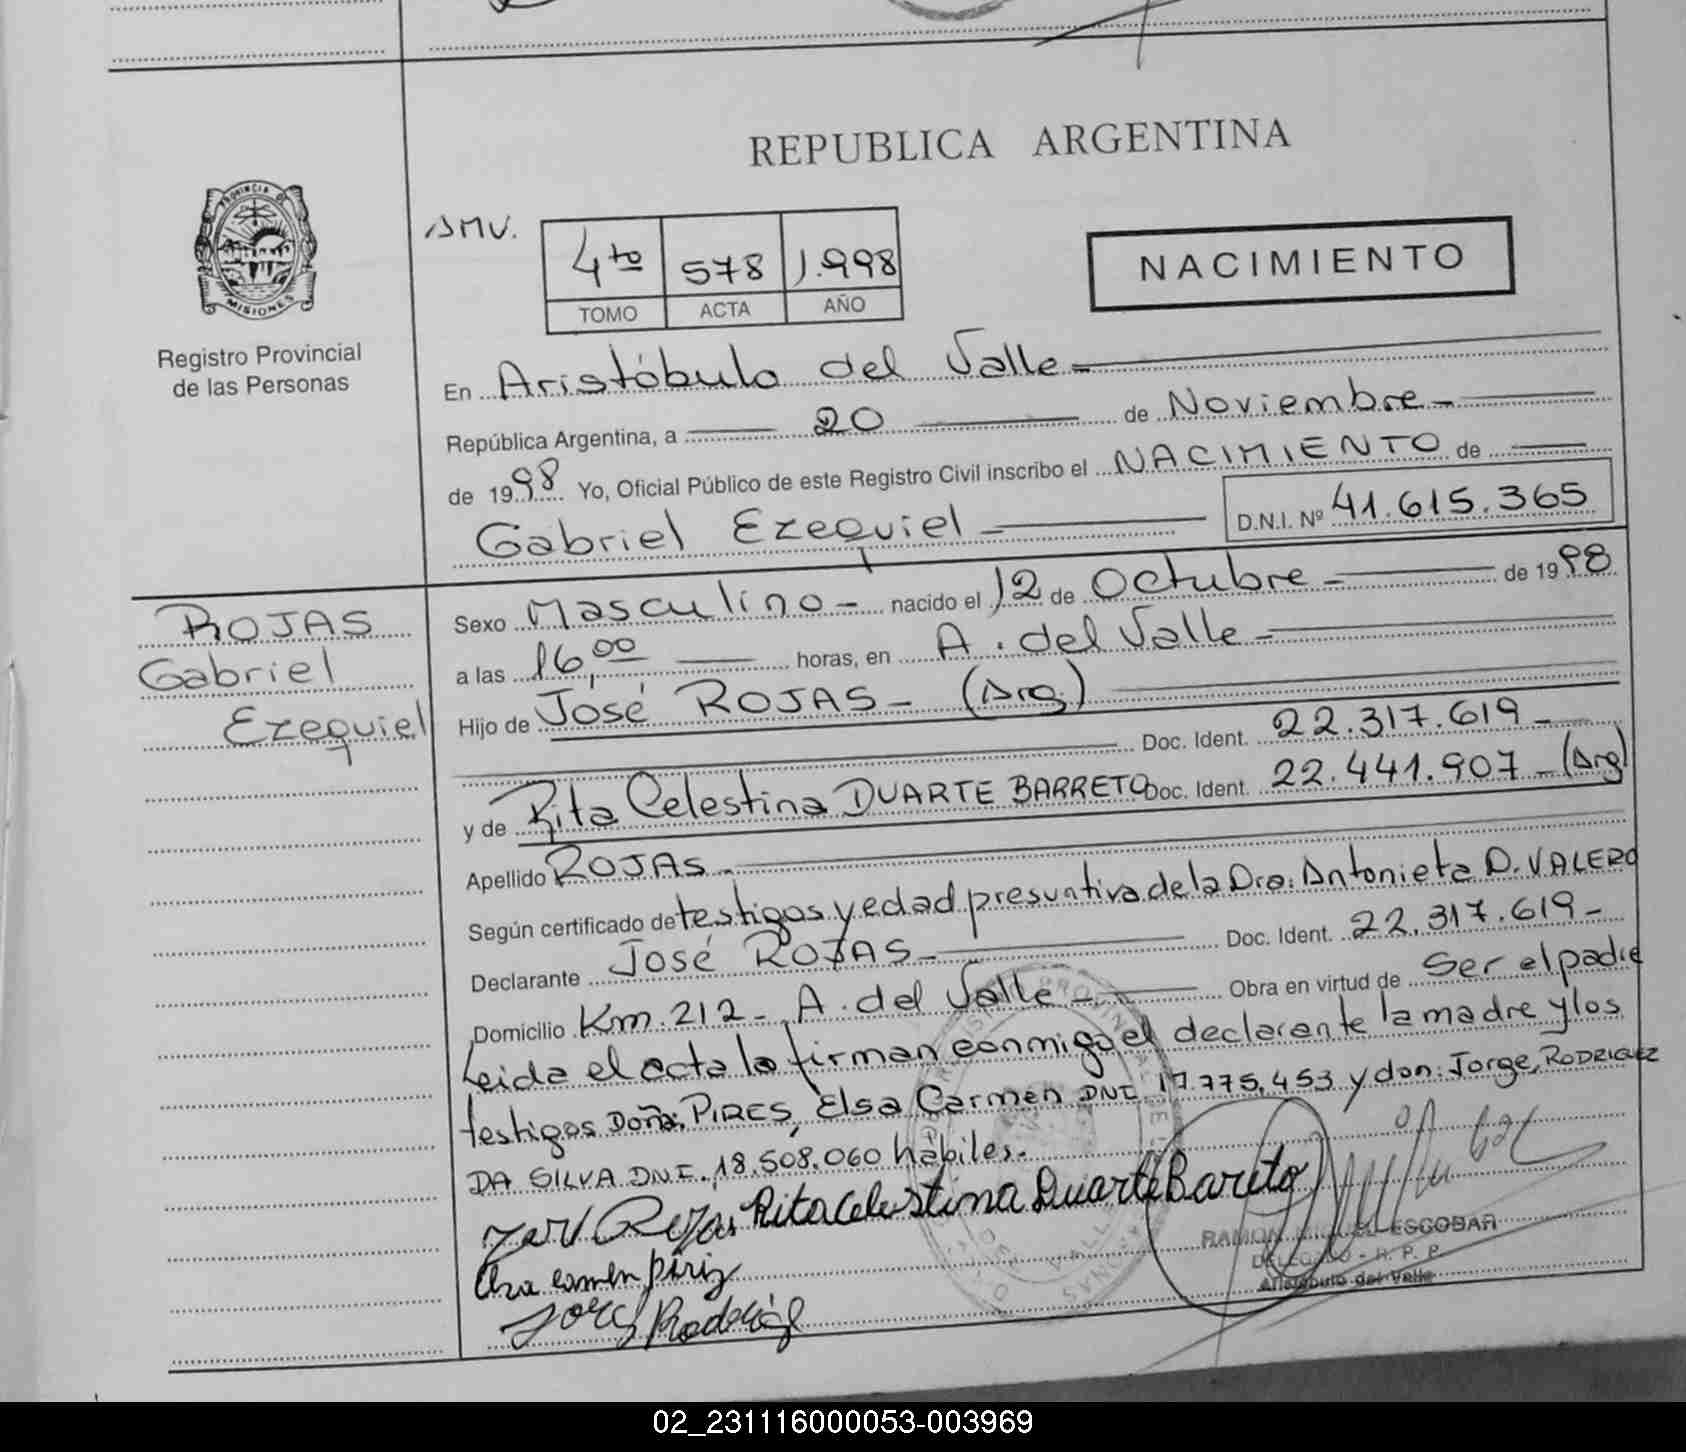 REPUBLICA ARGENTINA
PROVINCIA DE
MISIONES
Registro Provincial
de las Personas
SMV.
4to 578 1.998
TOMO ACTA AÑO
NACIMIENTO
En Aristóbulo del Valle
República Argentina, a 20 de Noviembre
de 1998 Yo, Oficial Público de este Registro Civil inscribo el NACIMIENTO de
Gabriel Ezequiel D.N.I. Nº 41.615.365
ROJAS
Gabriel
Ezequiel
Sexo Masculino nacido el 12 de Octubre de 1998
a las 16,00 horas, en A. del Valle
Hijo de José ROJAS (Arg.)
Doc. Ident. 22.317.619
y de Rita Celestina DUARTE BARRETO Doc. Ident. 22.441.907 (Arg)
Apellido ROJAS
Según certificado de testigos y edad presuntiva de la Dra. Antonieta D. VALERO
Declarante José ROJAS Doc. Ident. 22.317.619
Domicilio Km. 212 A. del Valle Obra en virtud de Ser el padre
Leida el acta la firman conmigo el declarante la madre y los
testigos Doña: PIRES, Elsa Carmen DNI. 17.775.453 y don: Jorge, RODRIGUEZ
DA SILVA DNI. 18.508.060 hábiles.
Rojas Rita Celestina Duarte Bareto
RAMON MIGUEL ESCOBAR
DELEGADO - R. P. P.
Aristóbulo del Valle
02_231116000053-003969